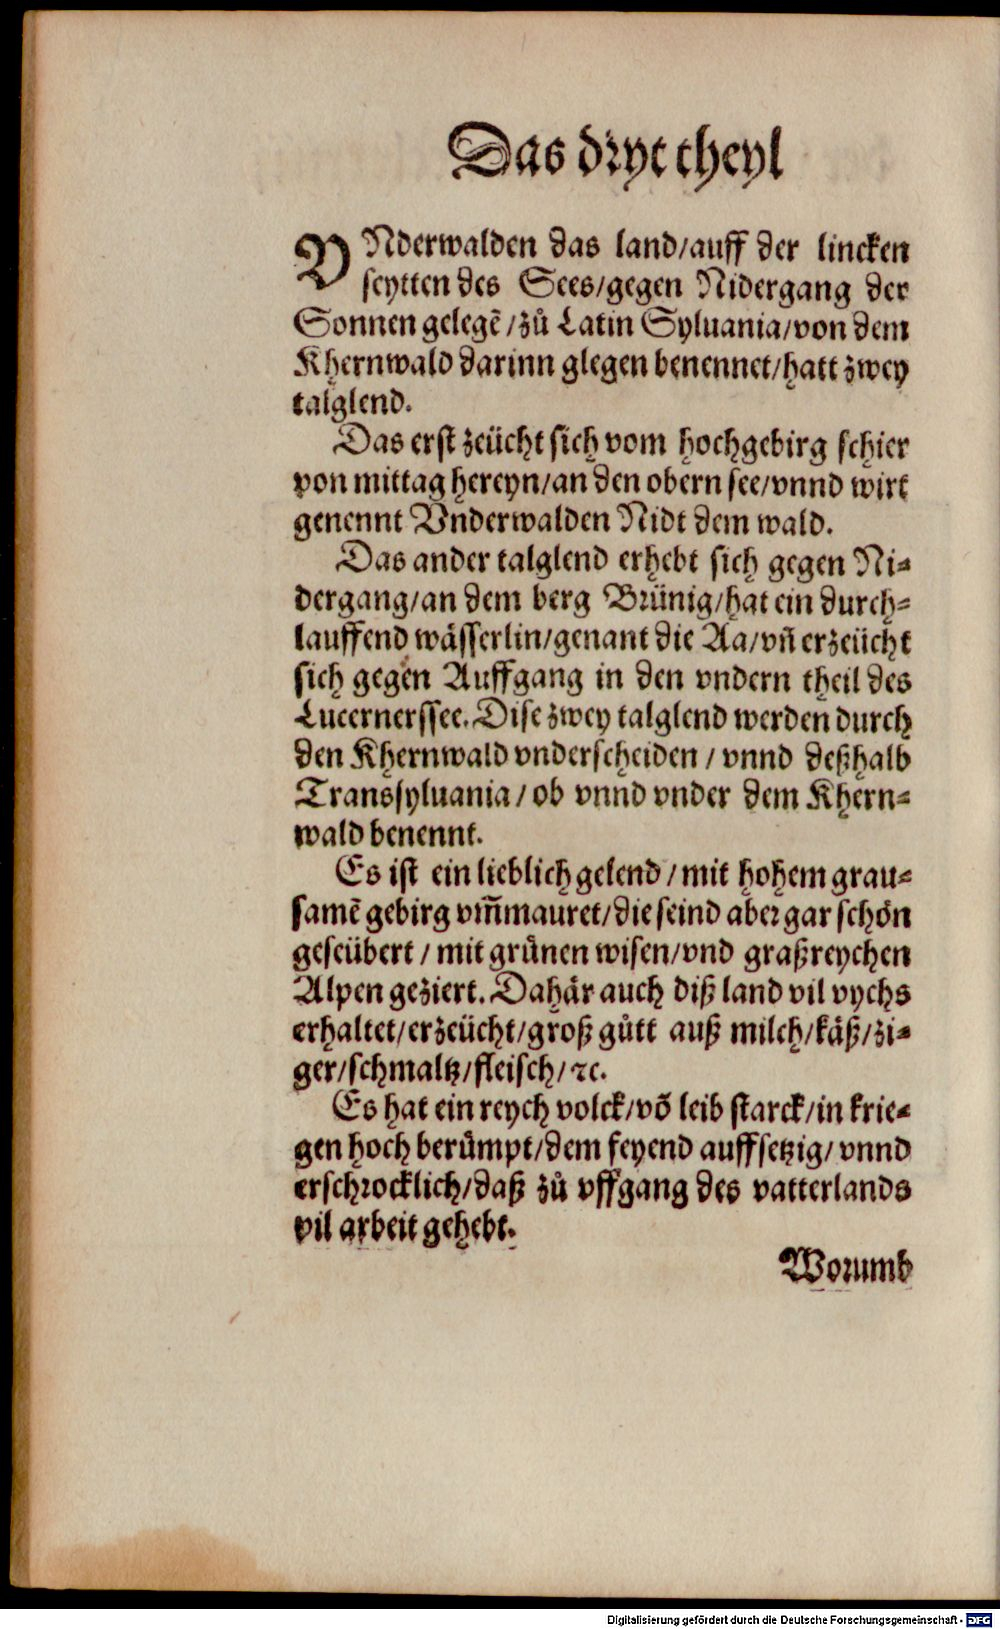 Das dryt theyl
VNderwalden das land/auff der lincken
seytten des Sees/gegen Nidergang der
Sonnen gelegē/zů Latin Syluania/von dem
Khernwald darinn glegen benennet/hatt zwey
talglend.
Das erst zeücht sich vom hochgebirg schier
von mittag hereyn/an den obern see/vnnd wirt
genennt Vnderwalden Nidt dem wald.
Das ander talglend erhebt sich gegen Ni-
dergang/an dem berg Brünig/hat ein durch-
lauffend wässerlin/genant die Aa/vn̄ erzeücht
sich gegen Auffgang in den vndern theil des
Lucernerssee. Dise zwey talglend werden durch
den Khernwald vnderscheiden/vnnd deßhalb
Transsyluania/ob vnnd vnder dem Khern-
wald benennt.
Es ist ein lieblich gelend/mit hohem grau-
samē gebirg vm̄mauret/die seind aber gar schön
geseübert/mit grünen wisen/vnd graßreychen
Alpen geziert. Dahär auch diß land vil vychs
erhaltet/erzeücht/groß gůtt auß milch/käß/zi-
ger/schmaltz/fleisch/ꝛc.
Es hat ein reych volck/vō leib starck/in krie-
gen hoch berůmpt/dem feyend auffsetzig/vnnd
erschrocklich/daß zů vffgang des vatterlands
vil arbeit gehebt.
Worumb
Digitalisierung gefördert durch die Deutsche Forschungsgemeinschaft - DFG